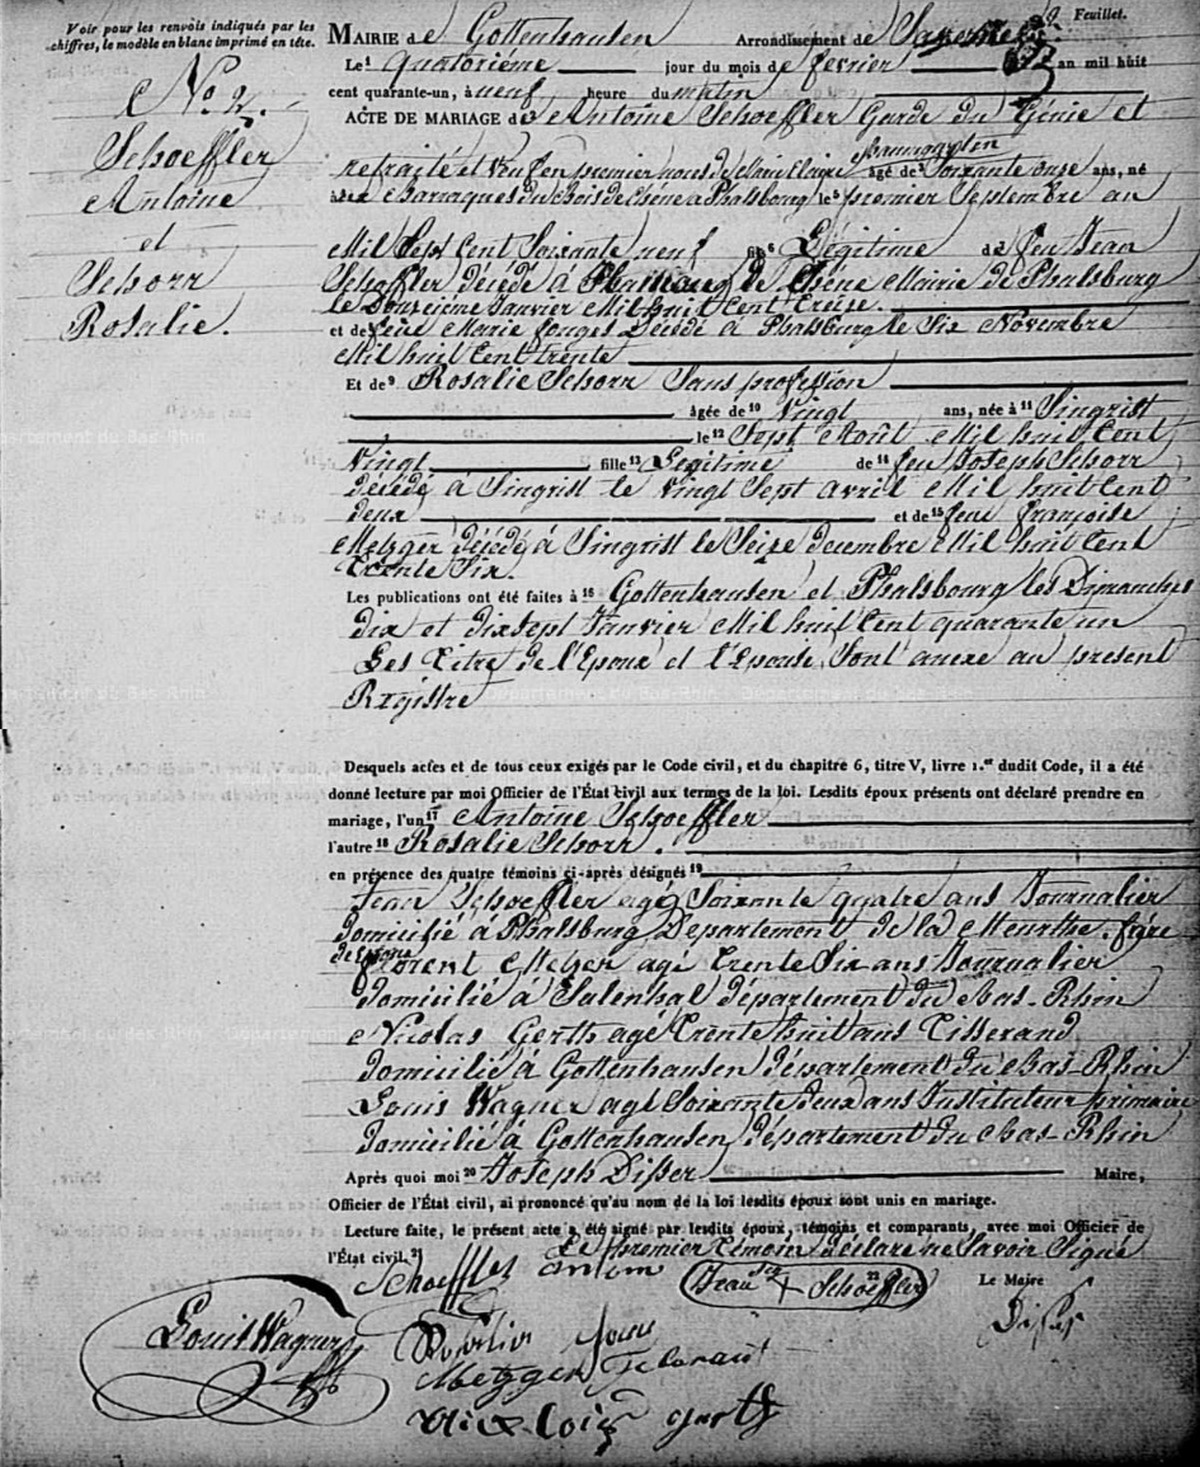 Voir pour les renvois indiqués par les
chiffres, le modèle en blanc imprimé en tête.
No 2.
Schoeffler
Antoine
et
Schorr
Rosalie.
Feuillet.
MAIRIE de Gottenhausen Arrondissement de Saverne
Le¹ quatorième jour du mois de février an mil huit
cent quarante-un, à neuf heure du matin
ACTE DE MARIAGE de Antoine Schoeffler Garde du Génie et
Baumgarten
retraité et veuf en premier noces de Marie Claire âgé de Soixante onze ans, né
aux Barraques du Bois de Chéne a Phalsbourg le⁵ premier Septembre an
Mil Sept Cent Soixante neuf fils⁶ Légitime de⁷ feu Jean
Schoeffler décédé à de Chéne Mairie de Phalsburg
le Douzieime Janvier Mil huit Cent Treize.
et de feue Marie fouges Décédé à Phalsburg le Six Novembre
Mil huit Cent trente
Et de⁹ Rosalie Schorr Sans profession
âgée de¹⁰ Vingt ans, née à¹¹ Singrist
le¹² Sept Août Mil huit Cent
Vingt fille¹³ Legitime de¹⁴ feu Joseph Schorr
décédé à Singrist le Vingt Sept avril Mil huit Cent
deux et de¹⁵ feue françoise
Metzger décédé à Singrist le Seize decembre Mil huit Cent
Trente Six.
Les publications ont été faites à¹⁶ Gottenhausen et Phalsbourg les Dimanches
dix et dixsept Janvier Mil huit Cent quarante un
Les Titre de l'Epoux et l'Epouse Sont anexe au present
Registre
Desquels actes et de tous ceux exigés par le Code civil, et du chapitre 6, titre V, livre 1.er dudit Code, il a été
donné lecture par moi Officier de l'État civil aux termes de la loi. Lesdits époux présents ont déclaré prendre en
mariage, l'un¹⁷ Antoine Schoeffler
l'autre¹⁸ Rosalie Schorr.
en présence des quatre témoins ci-après désignés¹⁹
Jean Schoeffler agé Soixante quatre ans Journalier
domicilié à Phalsburg Departement de la Meurthe. frére
de Epoux
florent Metzger agé Trente Six ans Journalier
domicilié à Salenthal département du Bas-Rhin
Nicolas Gerth agé Trente huit ans Tisserand
domicilié à Gottenhausen département du Bas-Rhin
Louis Wagner agé Soixante deux ans Instituteur primaire
domicilié à Gottenhausen département du Bas-Rhin
Après quoi moi²⁰ Joseph Disser Maire,
Officier de l'État civil, ai prononcé qu'au nom de la loi lesdits époux sont unis en mariage.
Lecture faite, le présent acte a été signé par lesdits époux, témoins et comparants, avec moi Officier de
l'État civil.²¹ Le premier Témoin déclare ne Savoir Signé
Schoeffler antoni
Jean Sig + Schoeffler
Le Maire
Disser
Louis Wagner
Metzger